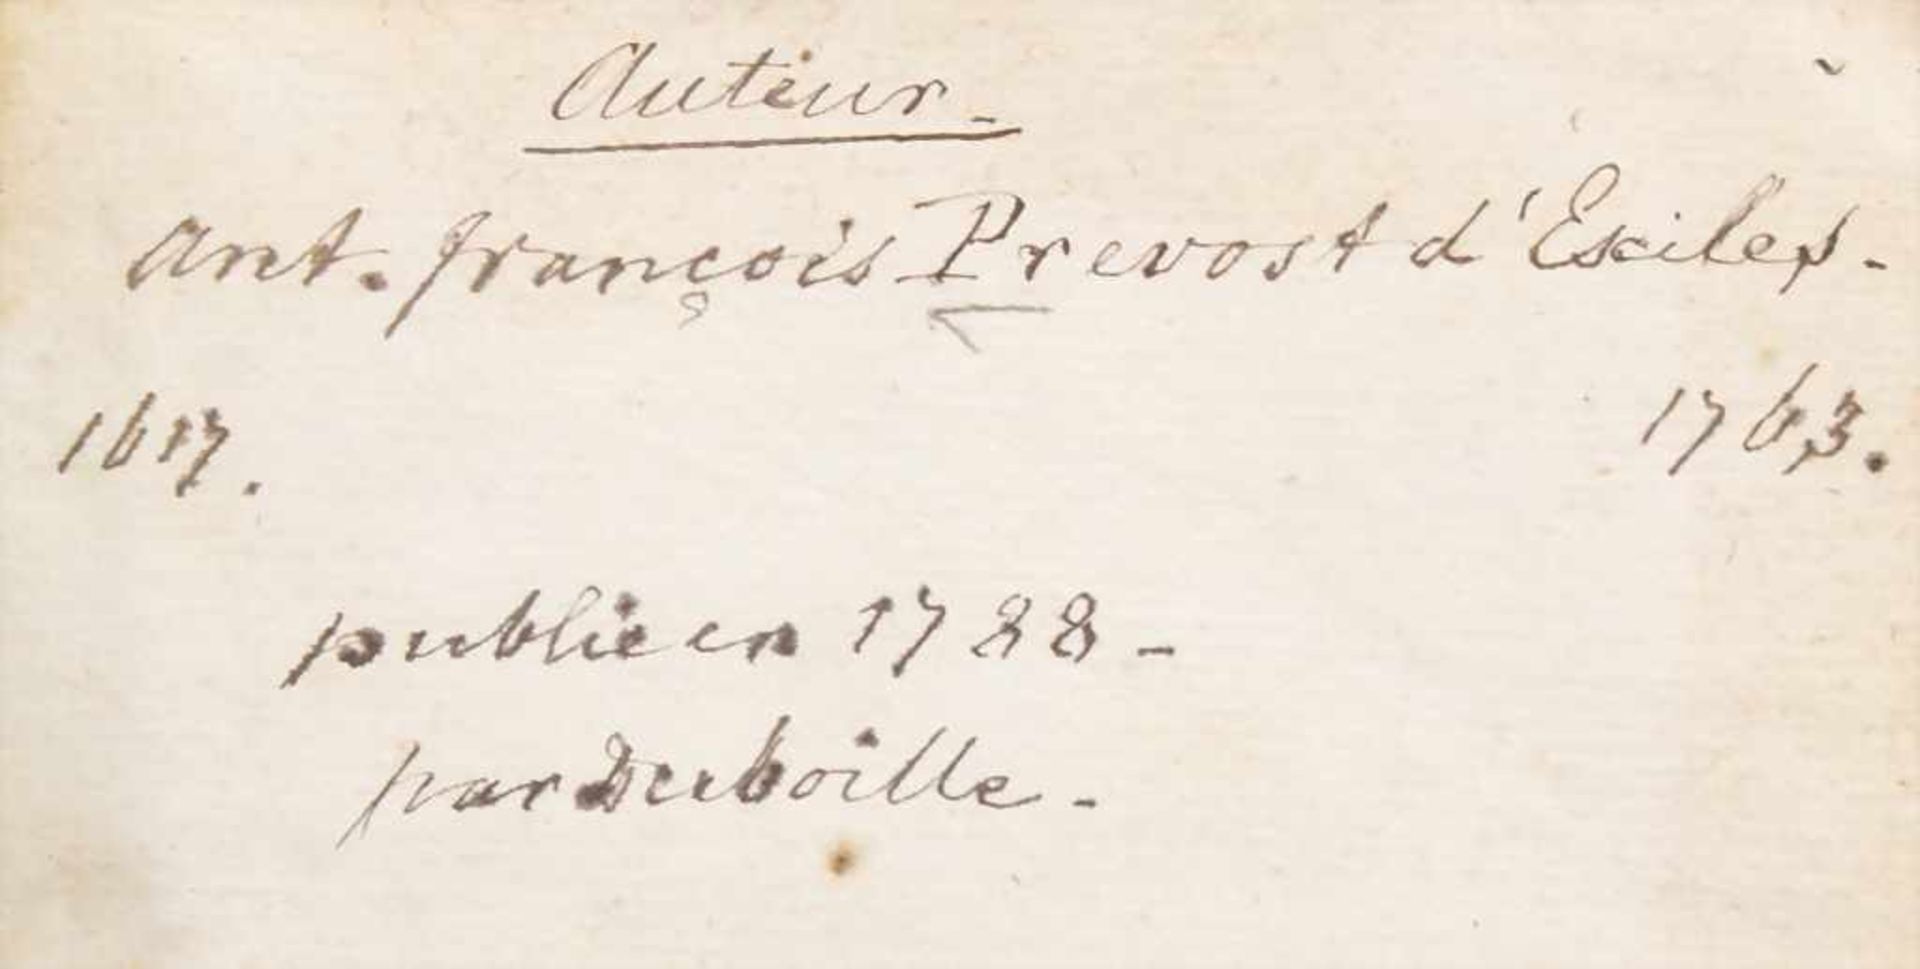 Auteur.
Ant. François Prevost d'Exiles.
1617. 1763.
publié en 1788 -
par Deuboille.